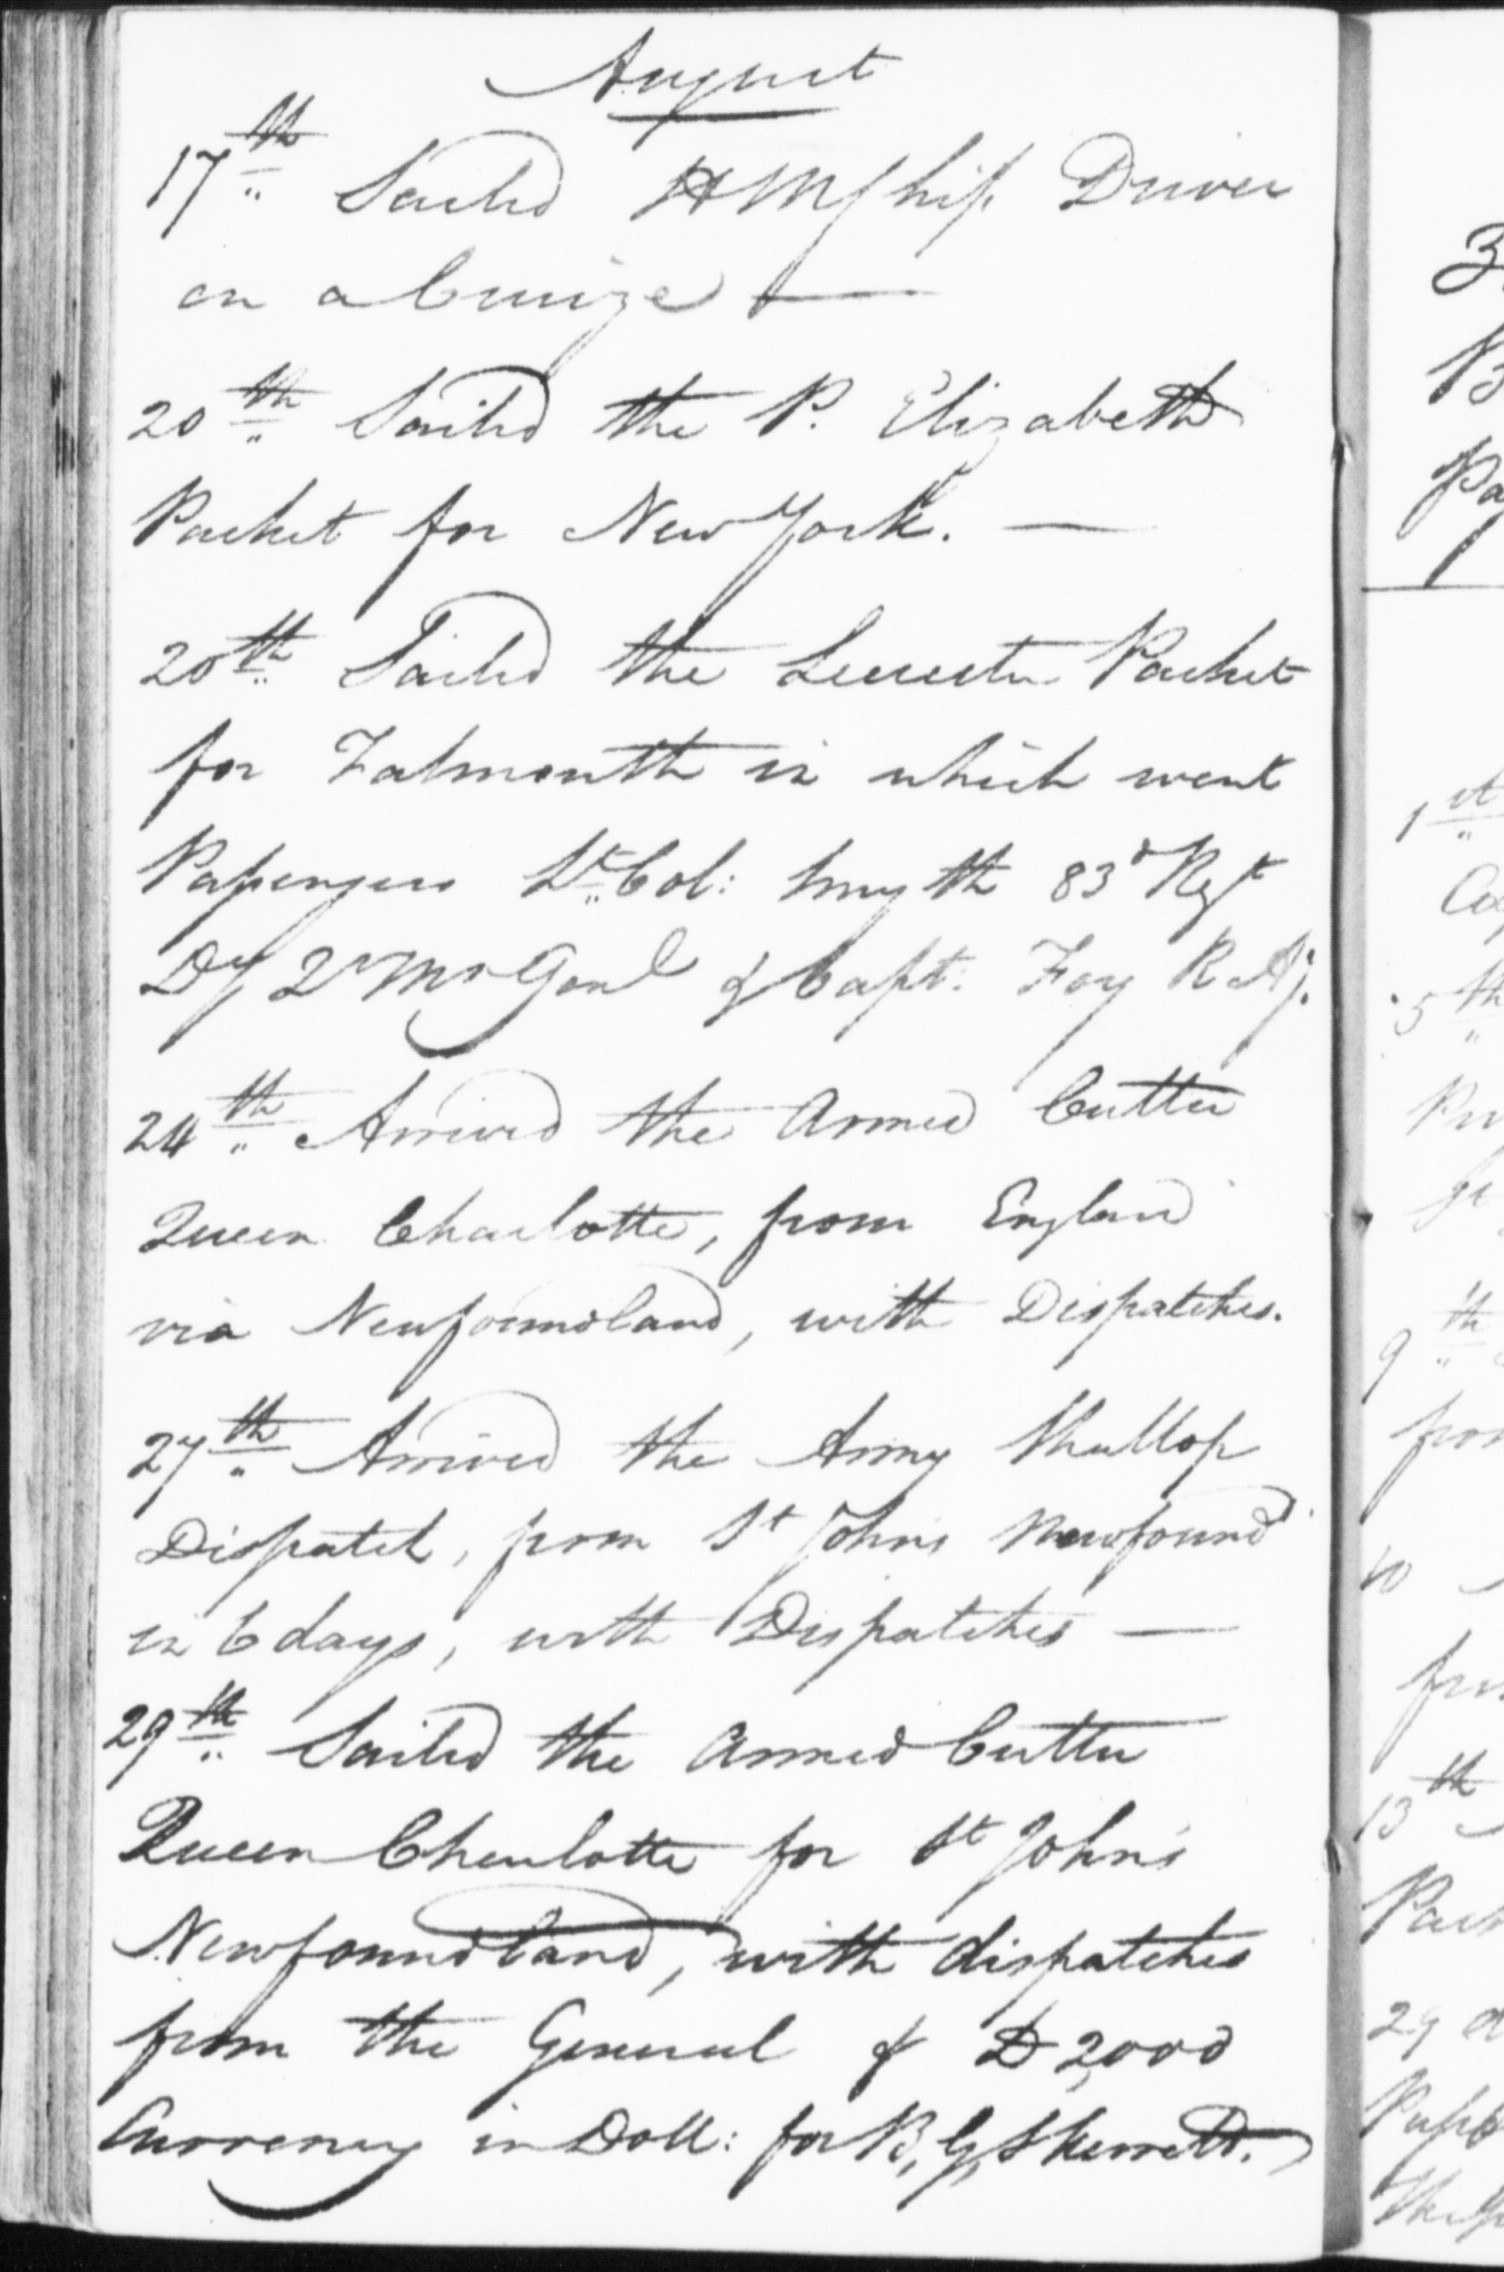 August
17th Sailed HMShip Driver
on a Cruize —
20th Sailed the P. Elizabeth
Packet for New York. —
20th Sailed the Leicester Packet
for Falmouth in which went
Passengers Lt Col: Smyth 83d Regt
Dy Qr Mr Genl & Capt: Foy R A.
24th Arrived the Armed Cutter
Queen Charlotte, from England
via Newfoundland, with Dispatches.
27th Arrived the Army Shallop
Dispatch, from St Johns Newfound
in 6 days, with Dispatches —
29th Sailed the Armed Cutter
Queen Charlotte for St John's
Newfoundland, with dispatches
from the General & £ 2000
Currency in Doll: for B, G, Skerrett.
1st
5th
9th
10
13th
29